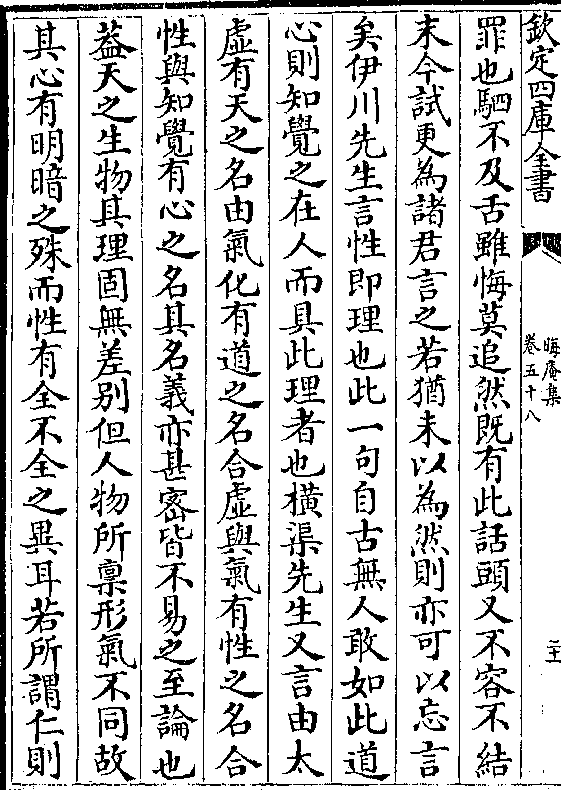 欽定四庫全書
晦庵集
卷五十八
二十
罪也駟不及舌雖悔莫追然既有此話頭又不容不結
末今試更為諸君言之若猶未以為然則亦可以忘言
矣伊川先生言性即理也此一句自古無人敢如此道
心則知覺之在人而具此理者也橫渠先生又言由太
虛有天之名由氣化有道之名合虛與氣有性之名合
性與知覺有心之名其名義亦甚宻皆不易之至論也
葢天之生物其理固無差别但人物所禀形氣不同故
其心有明暗之殊而性有全不全之異耳若所謂仁則